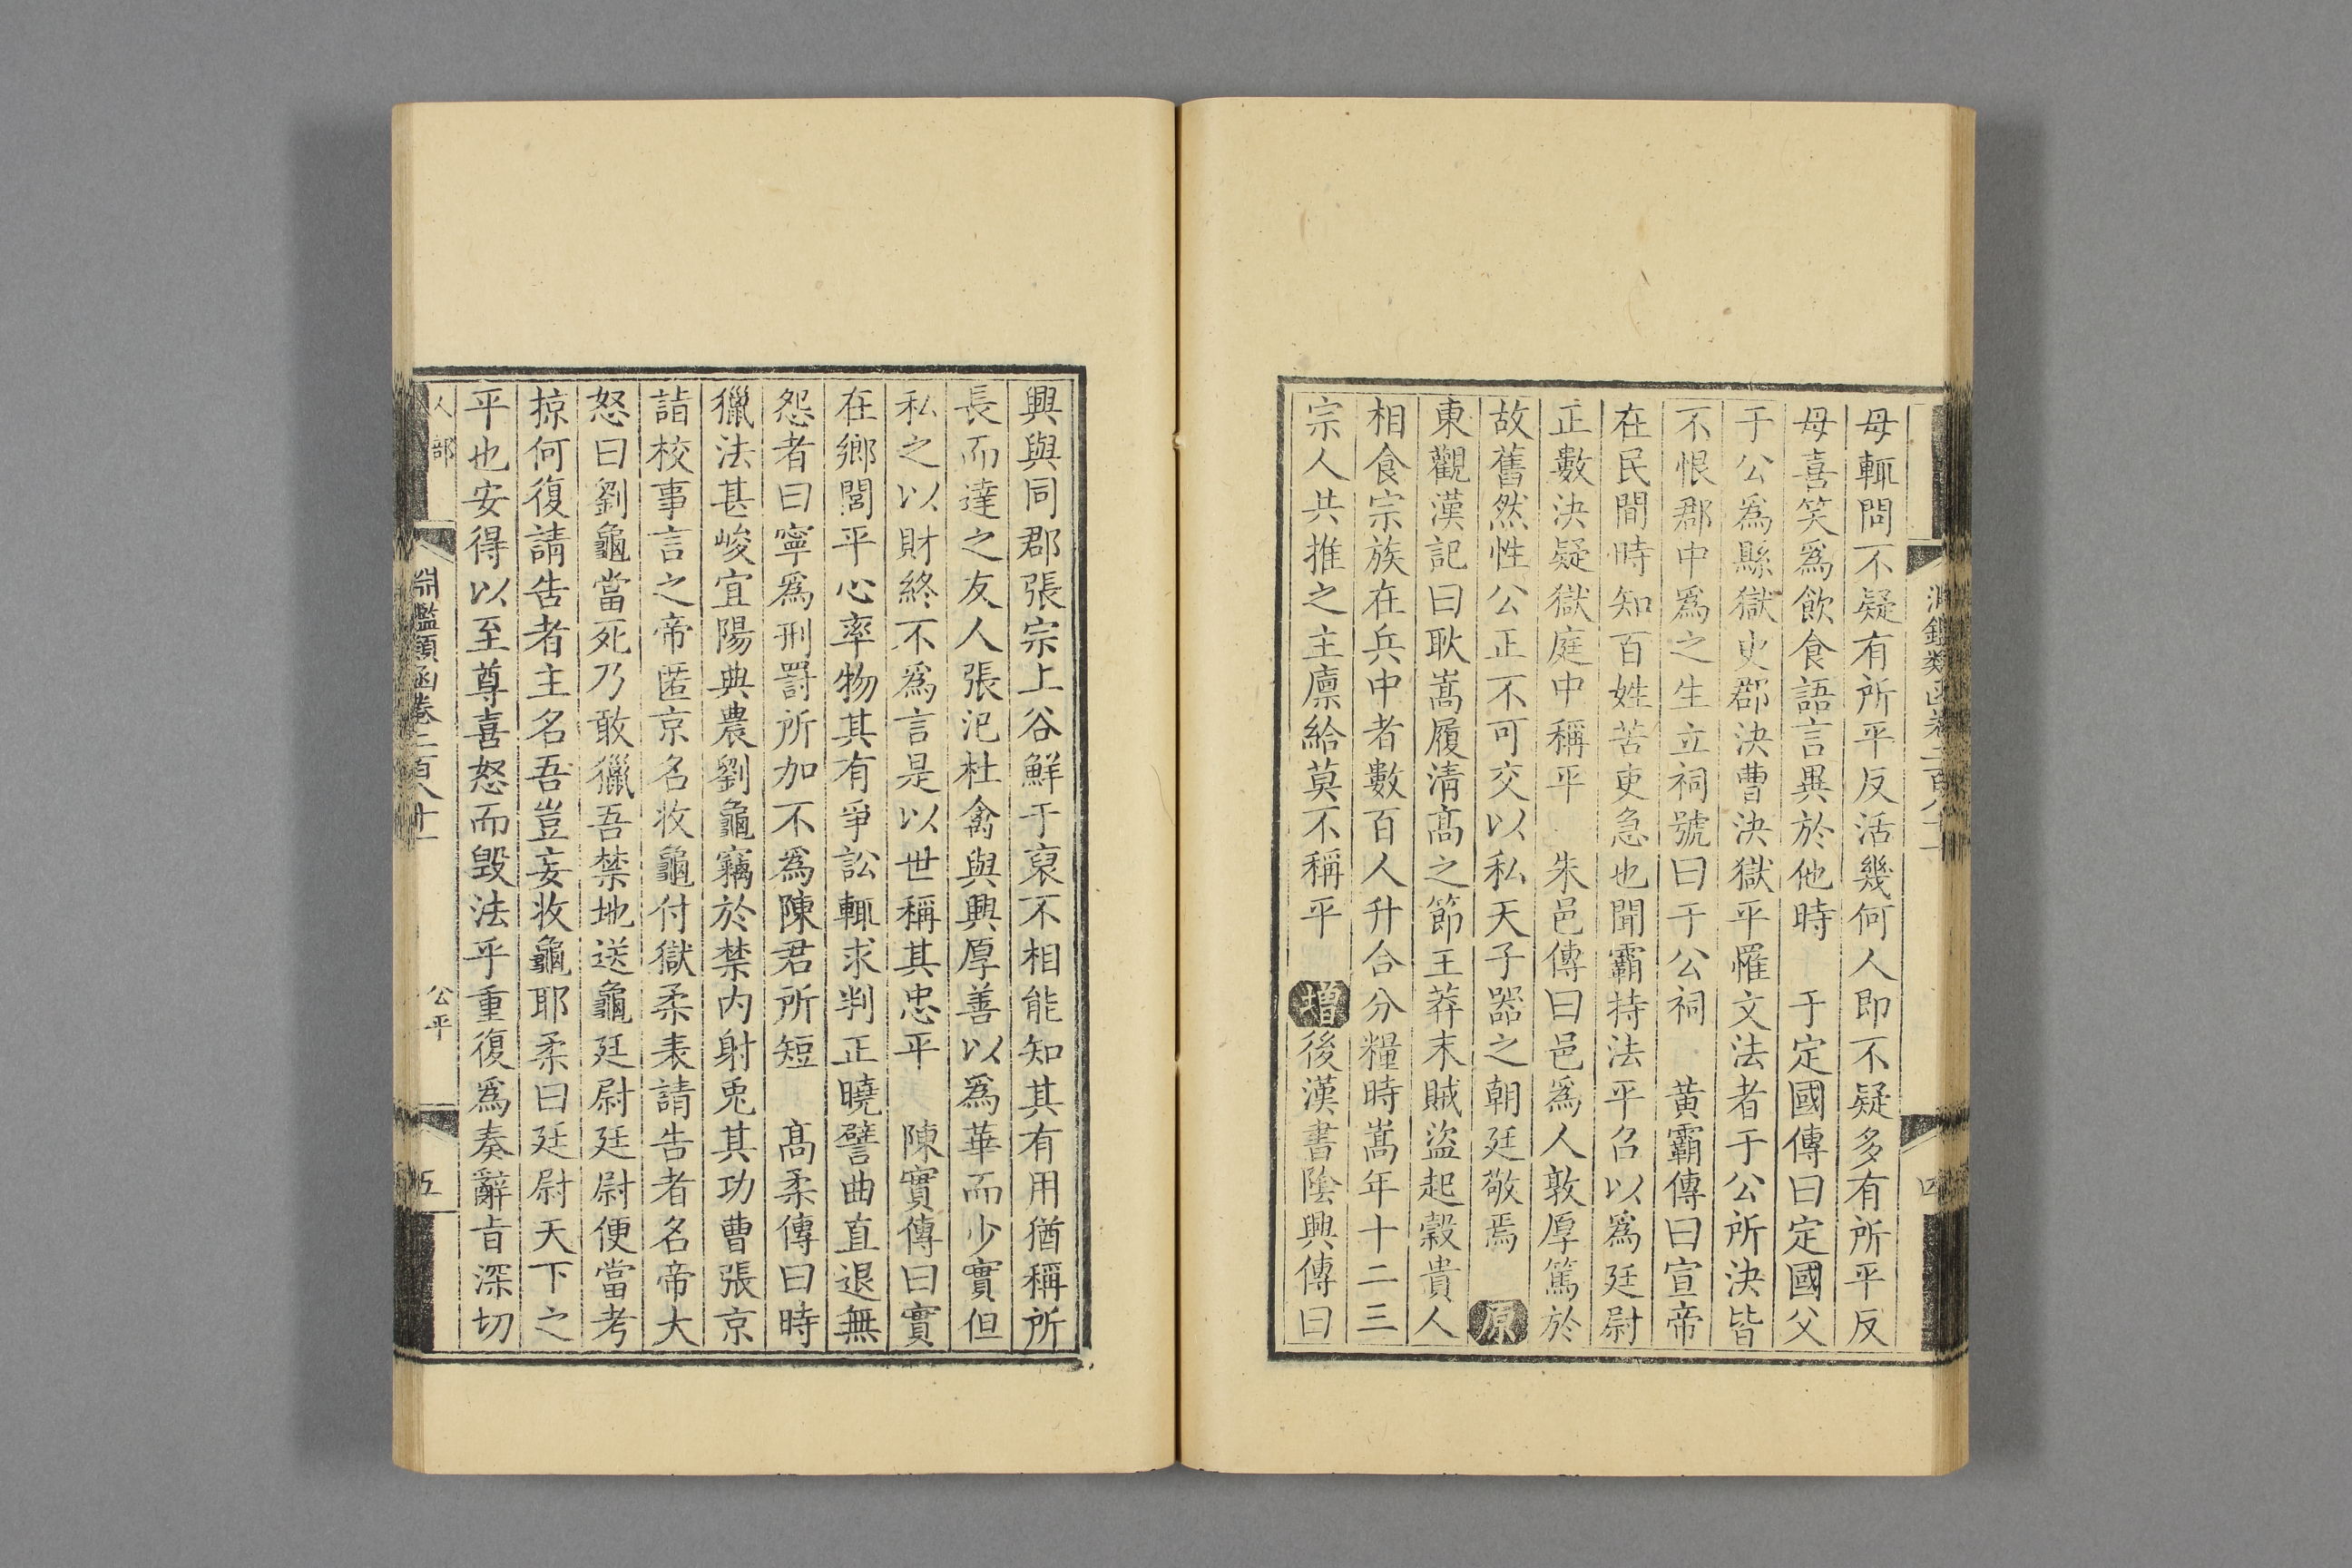 淵鑑類函卷二百八十一
四
母輒問不疑有所平反活幾何人即不疑多有所平反
母喜笑爲飲食語言異於他時 于定國傳曰定國父
于公爲縣獄史郡決曹決獄平罹文法者于公所決皆
不恨郡中爲之生立祠號曰于公祠 黃霸傳曰宣帝
在民間時知百姓苦吏急也聞霸持法平召以爲廷尉
正數決疑獄庭中稱平 朱邑傳曰邑爲人敦厚篤於
故舊然性公正不可交以私天子器之朝廷敬焉 原
東觀漢記曰耿嵩履清髙之節王莽末賊盜起穀貴人
相食宗族在兵中者數百人升合分糧時嵩年十二三
宗人共推之主廩給莫不稱平 增後漢書陰興傳曰
興與同郡張宗上谷鮮于裒不相能知其有用猶稱所
長而達之友人張汜杜禽與興厚善以爲華而少實但
私之以財終不爲言是以世稱其忠平 陳實傳曰實
在鄉閭平心率物其有爭訟輒求判正曉譬曲直退無
怨者曰寧爲刑罰所加不爲陳君所短 髙柔傳曰時
獵法甚峻宜陽典農劉龜竊於禁内射兎其功曹張京
詣校事言之帝匿京名收龜付獄柔表請告者名帝大
怒曰劉龜當死乃敢獵吾禁地送龜廷尉廷尉便當考
掠何復請告者主名吾豈妄收龜耶柔曰廷尉天下之
平也安得以至尊喜怒而毀法乎重復爲奏辭旨深切
人部 淵鑑類函卷二百八十一 公平 五